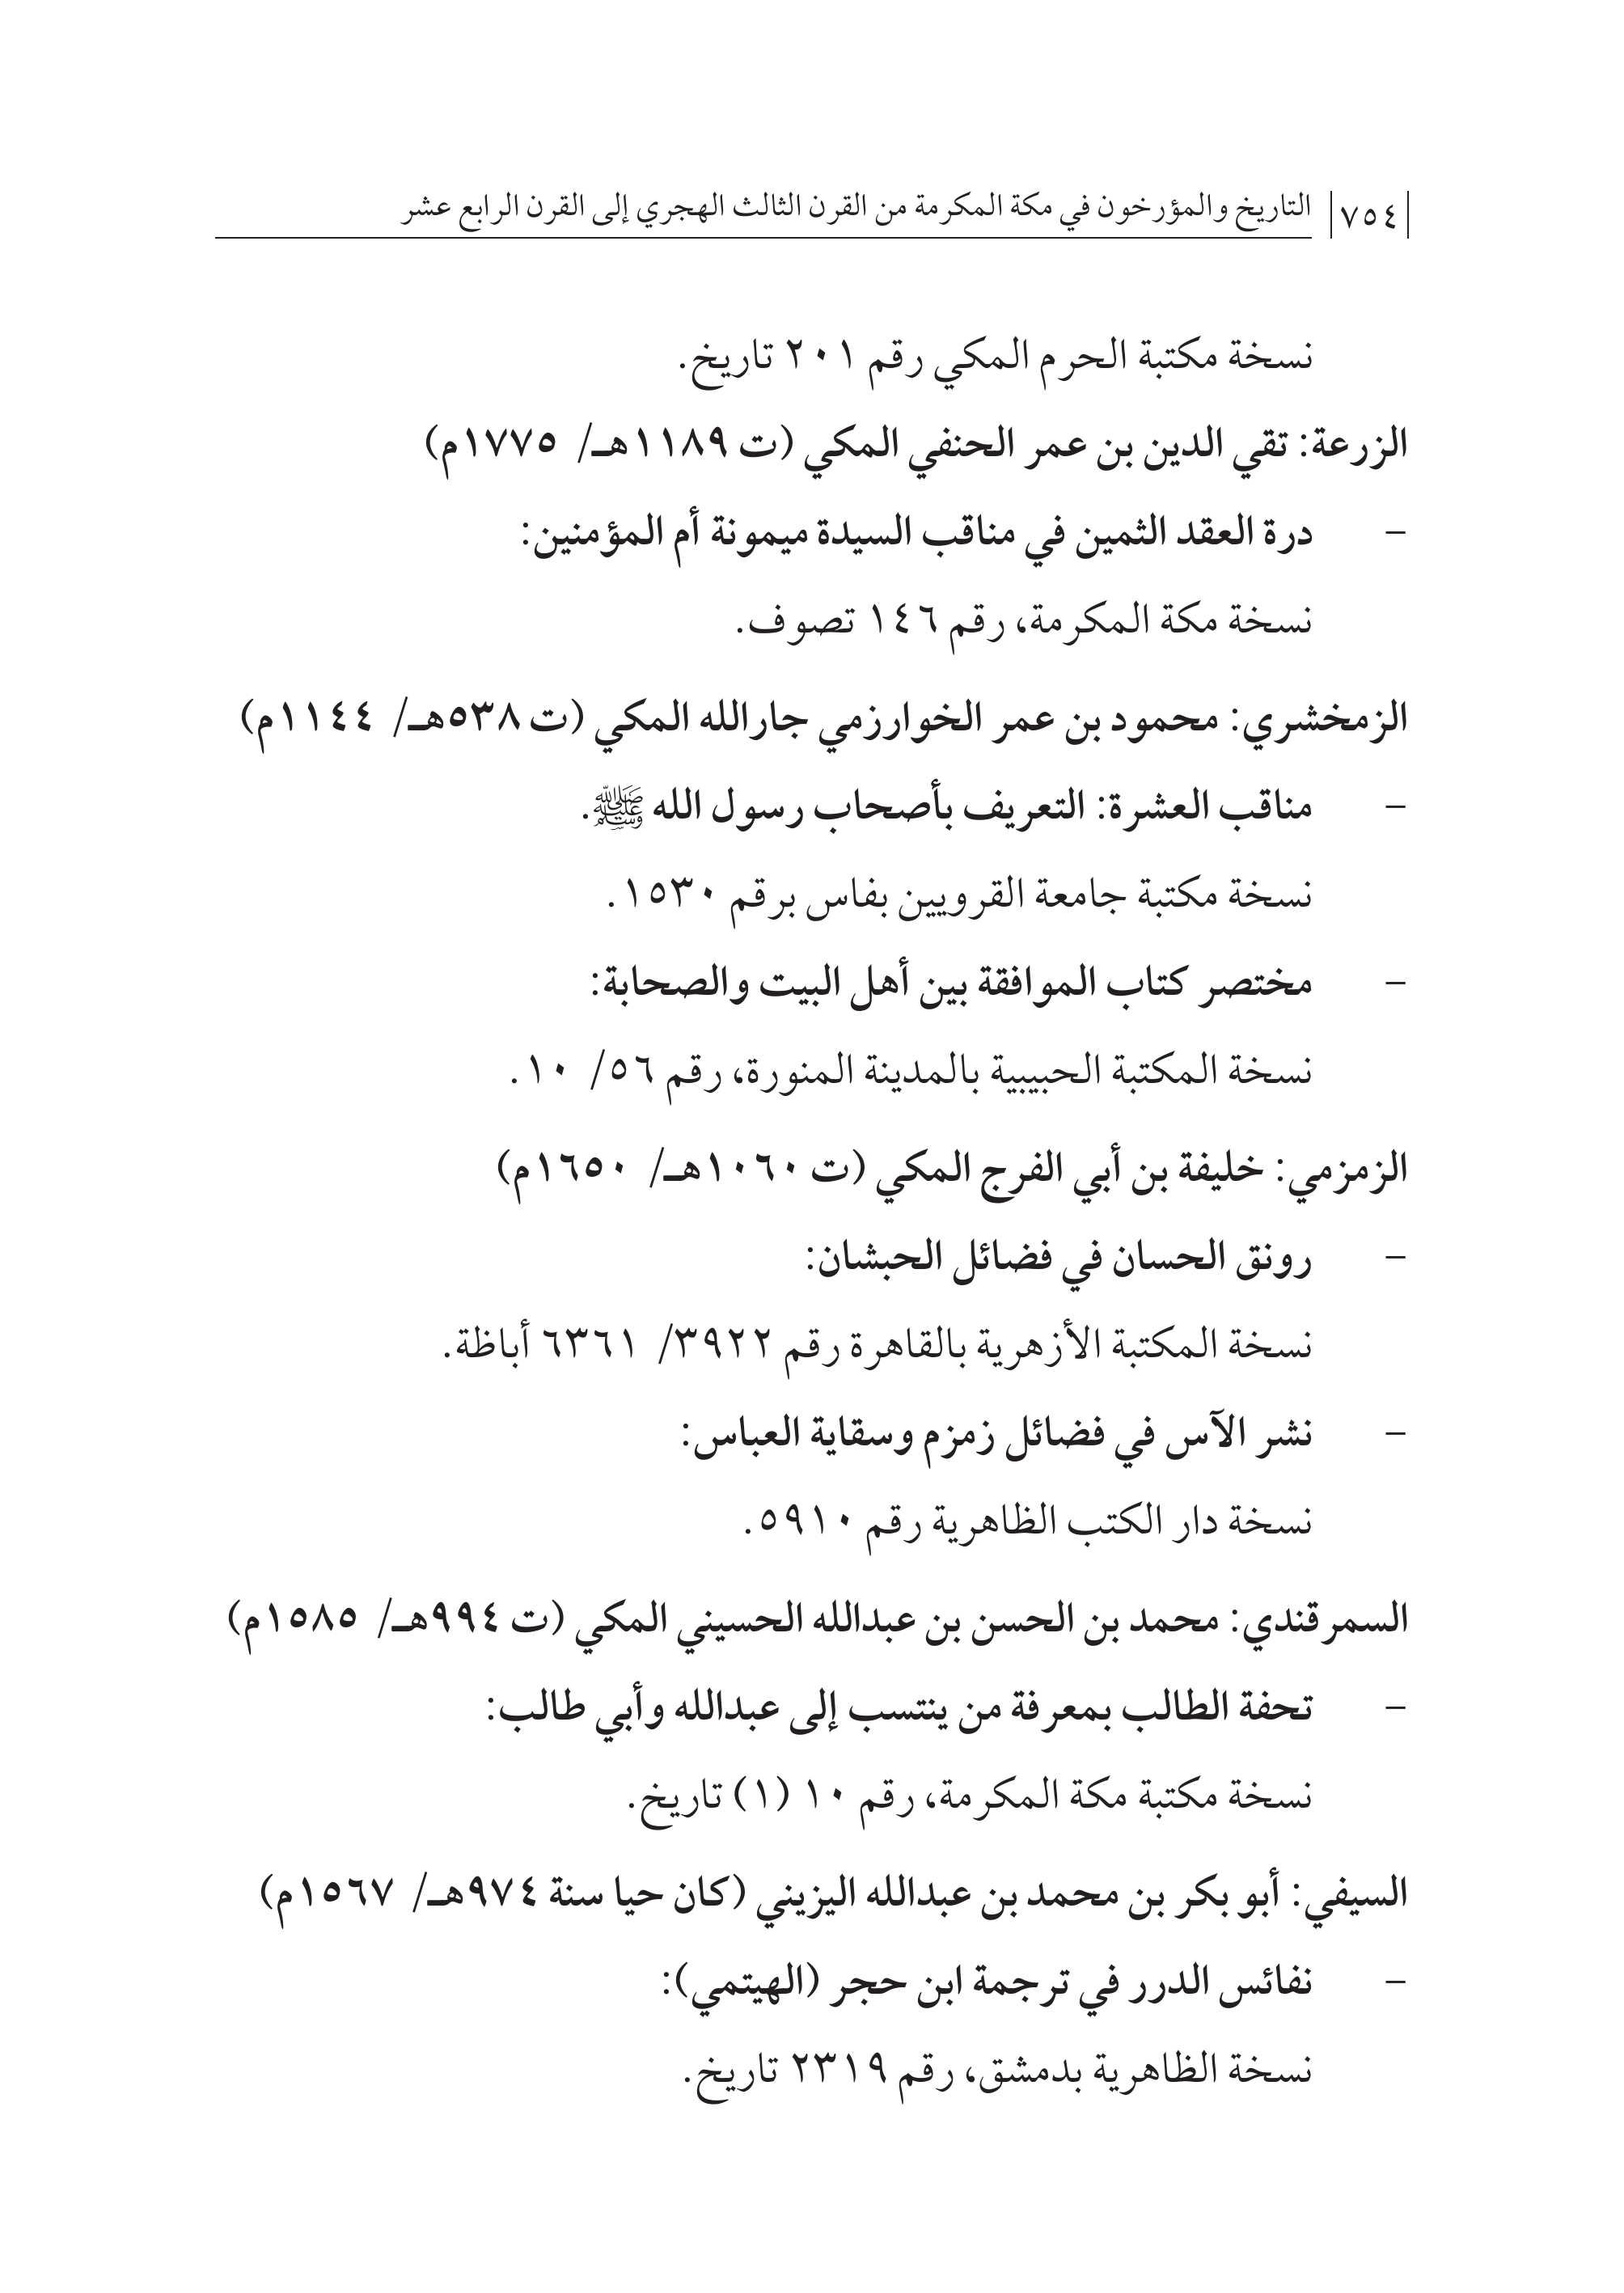 ٧٥٤ التاريخ والمؤرخون في مكة المكرمة من القرن الثالث الهجري إلى القرن الرابع عشر
نسخة مكتبة الحرم المكي رقم ٢٠١ تاريخ.
الزرعة: تقي الدين بن عمر الحنفي المكي (ت ١١٨٩هـ/ ١٧٧٥م)
– درة العقد الثمين في مناقب السيدة ميمونة أم المؤمنين:
نسخة مكة المكرمة، رقم ١٤٦ تصوف.
الزمخشري: محمود بن عمر الخوارزمي جارالله المكي (ت ٥٣٨هـ/ ١١٤٤م)
– مناقب العشرة: التعريف بأصحاب رسول الله ﷺ.
نسخة مكتبة جامعة القرويين بفاس برقم ١٥٣٠.
– مختصر كتاب الموافقة بين أهل البيت والصحابة:
نسخة المكتبة الحبيبية بالمدينة المنورة، رقم ٥٦/ ١٠.
الزمزمي: خليفة بن أبي الفرج المكي (ت ١٠٦٠هـ/ ١٦٥٠م)
– رونق الحسان في فضائل الحبشان:
نسخة المكتبة الأزهرية بالقاهرة رقم ٣٩٢٢/ ٦٣٦١ أباظة.
– نشر الآس في فضائل زمزم وسقاية العباس:
نسخة دار الكتب الظاهرية رقم ٥٩١٠.
السمرقندي: محمد بن الحسن بن عبدالله الحسيني المكي (ت ٩٩٤هـ/ ١٥٨٥م)
– تحفة الطالب بمعرفة من ينتسب إلى عبدالله وأبي طالب:
نسخة مكتبة مكة المكرمة، رقم ١٠ (١) تاريخ.
السيفي: أبو بكر بن محمد بن عبدالله اليزيني (كان حيا سنة ٩٧٤هـ/ ١٥٦٧م)
– نفائس الدرر في ترجمة ابن حجر (الهيتمي):
نسخة الظاهرية بدمشق، رقم ٢٣١٩ تاريخ.